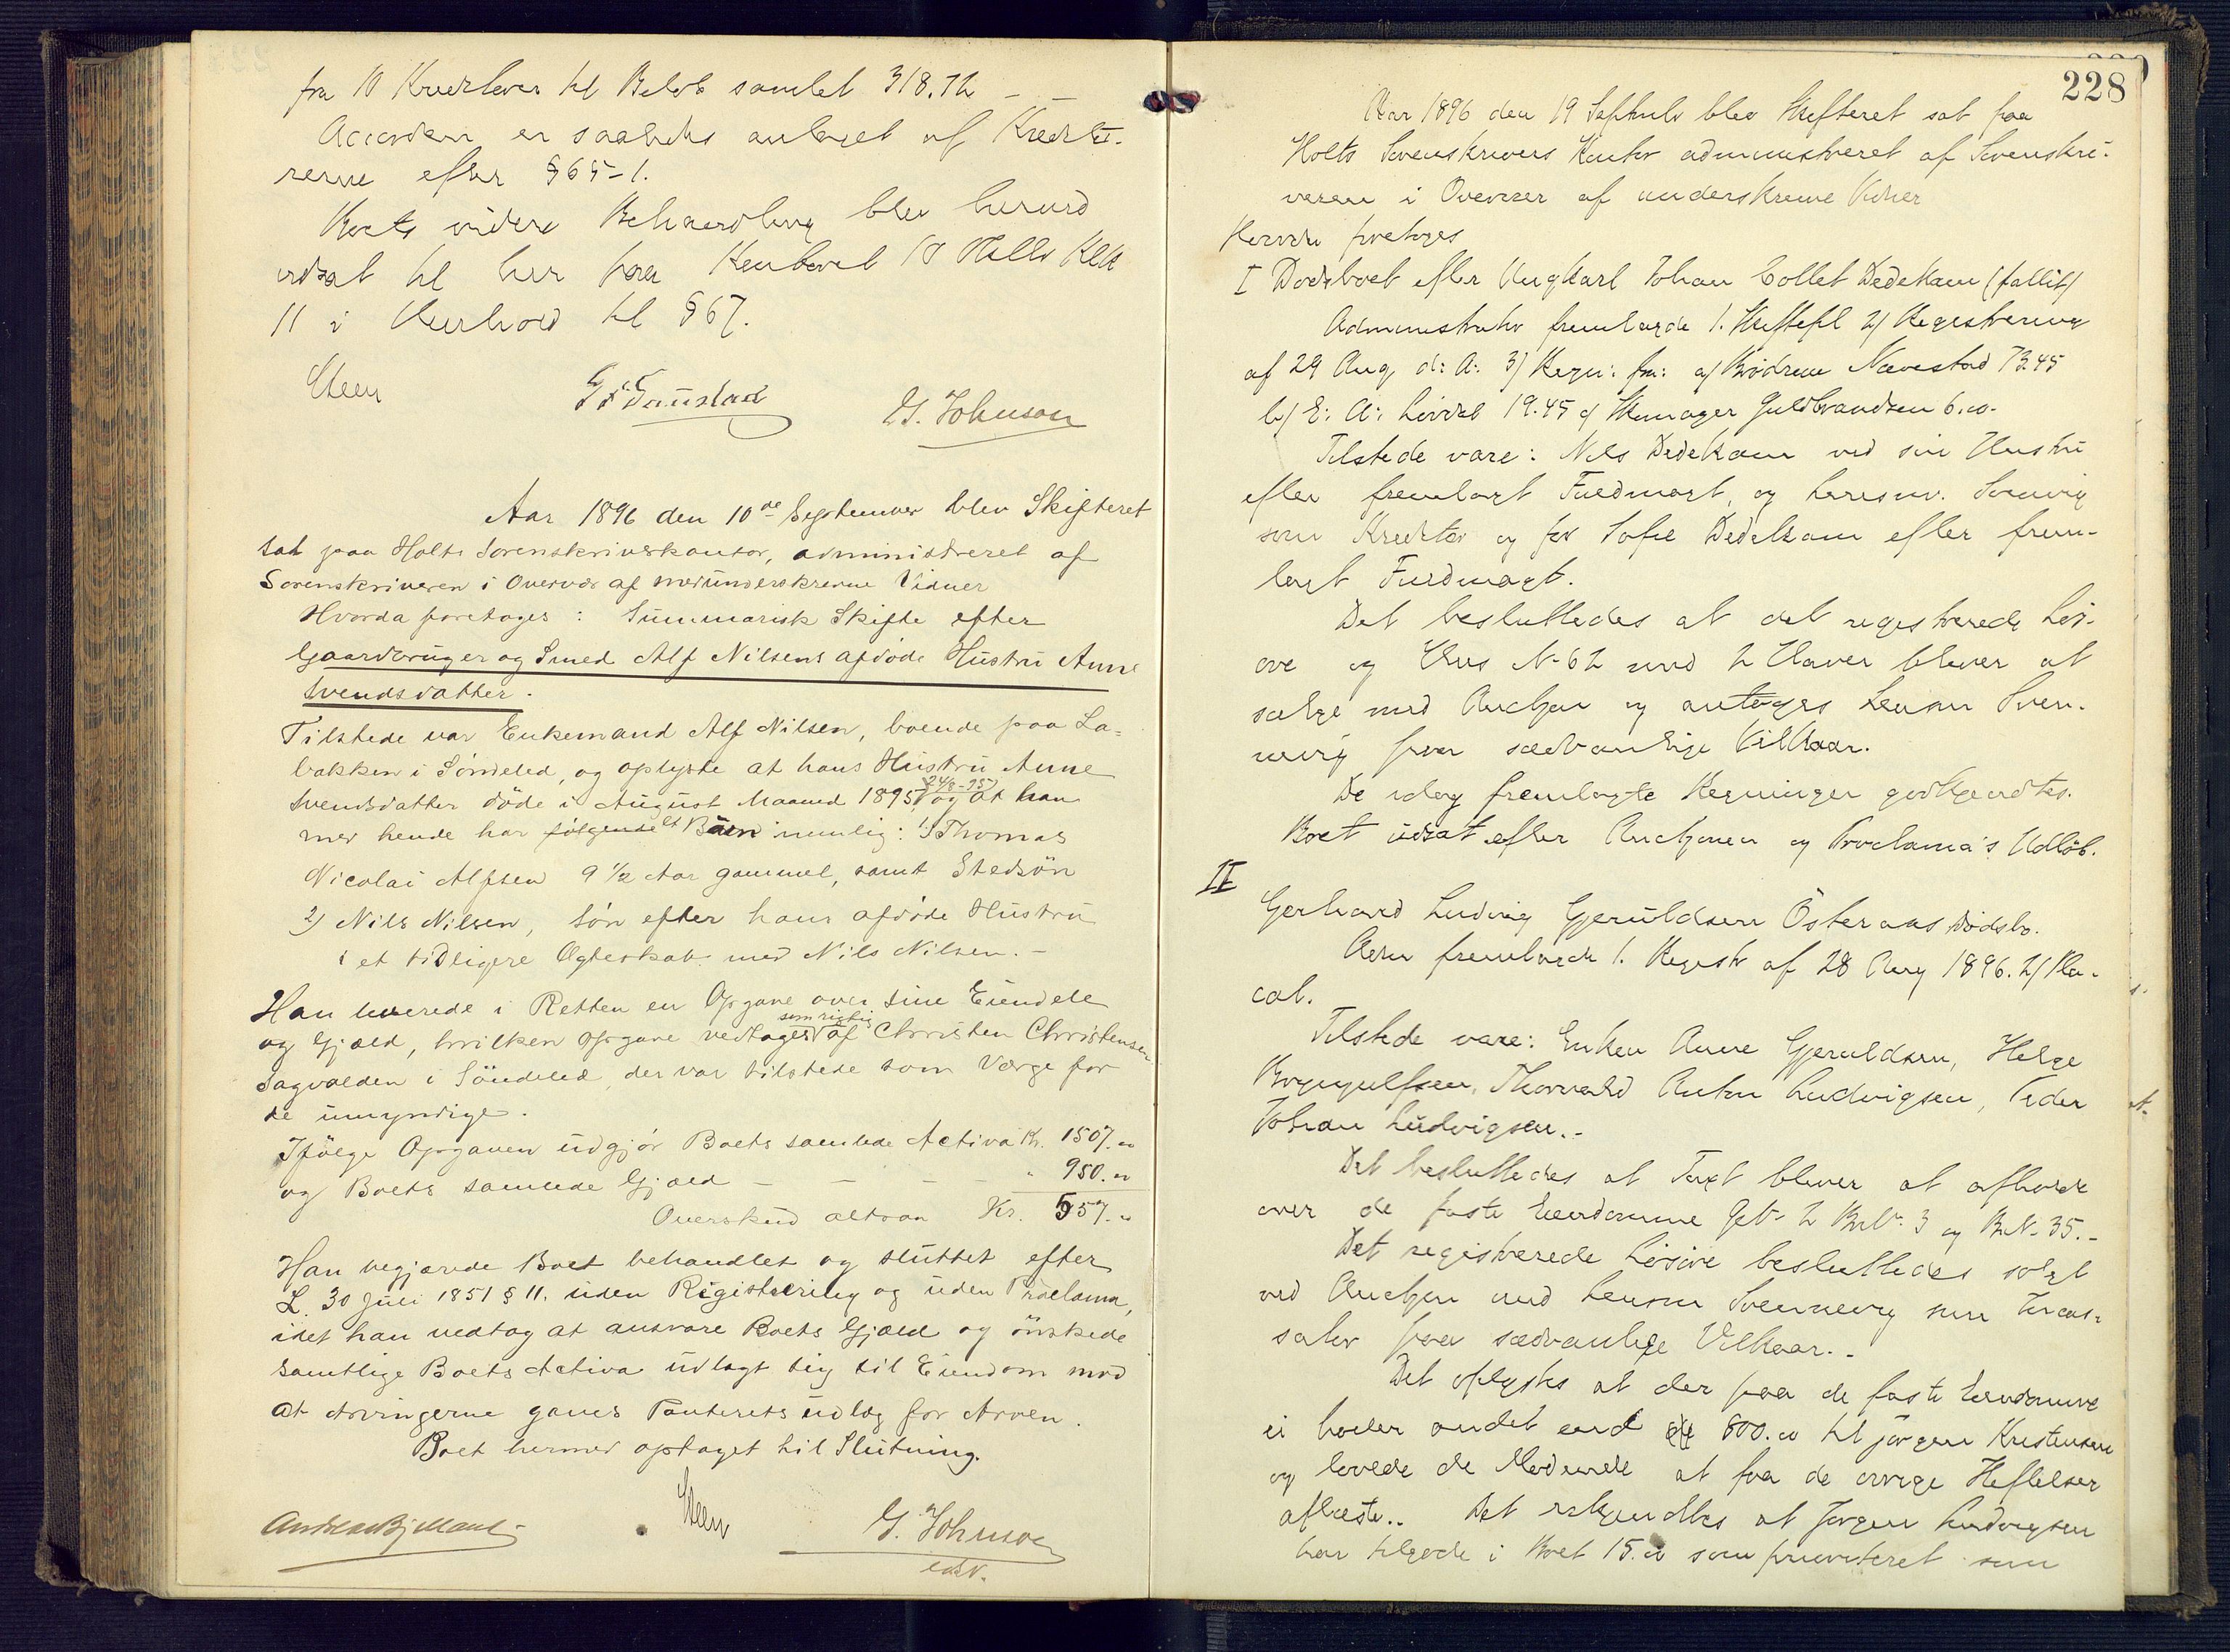 fra 10 Kreditorer til Beløb samlet 318.72
Accorden er saaledes antaget af Kredito-
rerne efter § 65-1.
Boets videre Behandling blev herved
udsat til her paa Kontoret 10 Klk
11 i Henhold til § 67.
Steen G F Gaustad G. Johnson
Aar 1896 den 10de September blev Skifteret
sat paa Holts Sorenskriverkontor, administreret af
Sorenskriveren i Overvær af medunderskrevne Vidner
Hvorda foretoges : Summarisk Skifte efter
Gaardbruger og Smed Alf Nilsens afdöde Hustru Anne
Svendsdatter.
Tilstede var Enkemand Alf Nilsen, boende paa La-
bakken i Söndeled, og oplyste at hans Hustru Anne
24/8-95
Svendsdatter döde i August Maaned 1895 og at han
med hende har følgende Barn nemlig: 1) Thomas
Nicolai Alfsen 9 1/2 Aar gammel, samt Stedsön
2) Nils Nilsen, Sön efter hans afdöde Hustru
i et tidligere Ægteskab med Nils Nilsen. -
Han leverede i Retten en Opgave over sine Eiendele
som rigtig
og Gjæld, hvilken Opgave vedtoges af Christen Christensen
Sagvolden i Söndeled, der var tilstede som Værge for
de umyndige.
Ifölge Opgaven udgjör Boets samlede Activa Kr. 1507.00
og Boets samlede Gjæld - - - - " 950.00
Overskud altsaa Kr. 557.00
Han begjærede Boet behandlet og sluttet efter
L. 30 Juli 1851 § 11. uden Registrering og uden Proclama,
idet han vedtog at ansvare Boets Gjæld og önskede
samtlige Boets Activa udlagt sig til Eiendom mod
at Arvingerne gaves Panterets udlæg for Arven.
Boet hermed optaget til Slutning.
Steen G. Johnson
edsv.
228
Aar 1896 den 19 September blev Skifteret sat paa
Holts Sorenskrivers Kontor administreret af Sorenskri-
veren i Overvær af underskrevne Vidner
Hvorda foretoges
I Dødsboet efter Ungkarl Johan Collet Dedekam (fallit)
Administrator fremlagde 1. Skiftefl 2) Registrering
af 29 Aug d: A: 3) Regn: fra: a) Brödrene Nævestad 73.45
b) E: A: Lövdal 19.45 c) Skomager Guldbrandsen 6.00.
Tilstede vare: Nils Dedekam ved sin Hustru
efter fremlagt Fuldmagt, og Lensm. Svenvig
som Kreditor og for Sofie Dedekam efter frem-
lagt Fuldmagt.
Det besluttedes at det registrerede Løs-
øre og Hus No 62 med 2 Haver bliver at
sælge ved Auction og antoges Lensm Sven-
nevig paa sædvanlige Vilkaar.
De idag fremlagte Regninger godkjendtes.
Boet udsat efter Auctionen og Proclama's Udløb.
II
Gerhard Ludvig Gjeruldsen Österaas Dødsbo.
Adm fremlagde 1. Registr af 28 Aug 1896. 2) Pla-
cat.
Tilstede vare: Enken Anne Gjeruldsen, Helge
Brynjulfsen, Thorvald Anton Ludvigsen, Peder
Johan Ludvigsen.-
Det besluttedes at Taxt bliver at afholde
over de faste Eiendomme GNo 2 BrNo 3 og BrNo 35.-
Det registrerede Løsøre besluttedes solgt
ved Auction med Lensm Svennevig som Incas-
sator paa sædvanlige Vilkaar.-
Det oplystes at der paa de faste Eiendomme
ei hviler andet end 800.00 til Jörgen Kristensen
og lovede de Mødende at faa de øvrige Heftelser
aflæste.. Det erkjendtes at Jørgen Ludvigsen
har tilgode i Boet 15.00 som prioriteret som